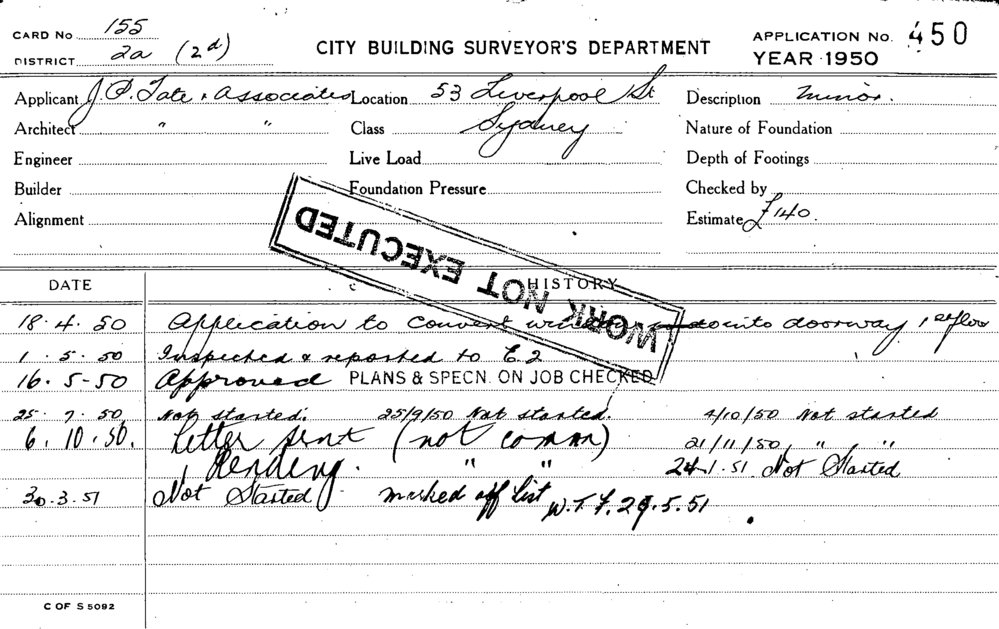 CARD No 155
DISTRICT 2a (2d)
CITY BUILDING SURVEYOR'S DEPARTMENT
APPLICATION No. 450
YEAR 1950
Applicant J. P. Tate & Associates Location 53 Liverpool St Description Minor.
Architect " " Class Sydney Nature of Foundation
Engineer Live Load Depth of Footings
Builder Foundation Pressure Checked by
Alignment Estimate £140.
WORK NOT EXECUTED
DATE HISTORY
18.4.50 Application to convert into doorway, 1st floor
1.5.50 Inspected & reported to E.2
16.5-50 Approved PLANS & SPECN. ON JOB CHECKED
25.7.50 Not started. 25/9/50 Not started. 4/10/50 Not started
6.10.50. Letter sent (not comm) 21/11/50 " "
Pending. " " 24.1.51 Not Started
30.3.51 Not Started marked off list W.T.F. 29.5.51
C OF S 5092